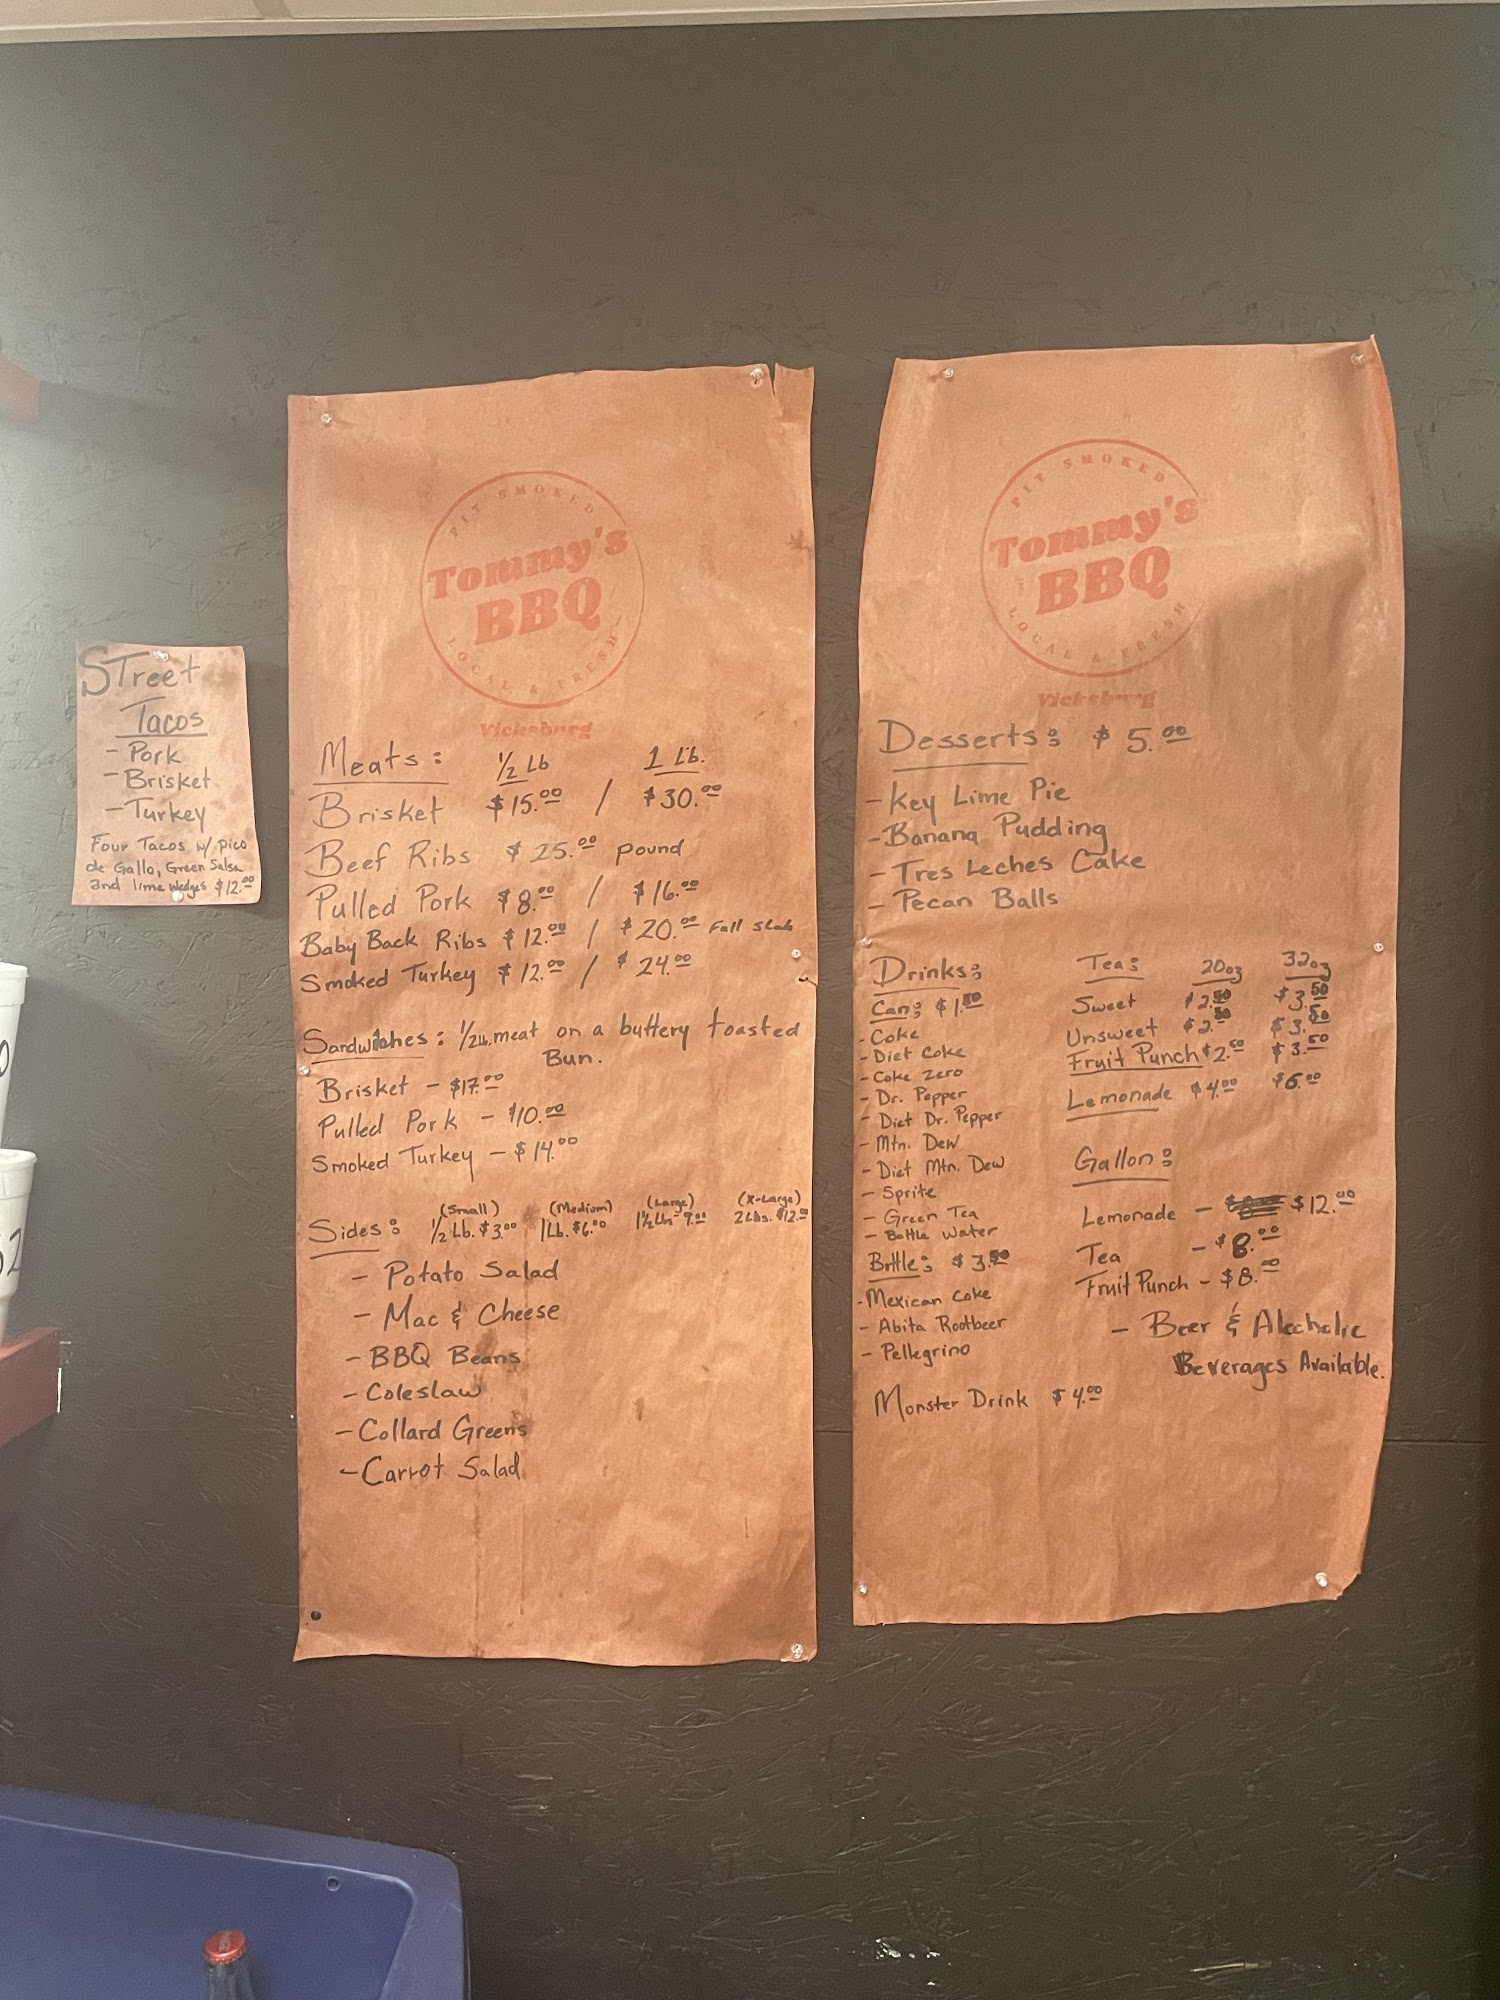 STreet
Tacos
- Pork
- Brisket
- Turkey
Four Tacos w/ pico
de Gallo, Green Salsa
and lime wedges $12.00
PIT SMOKED
Tommy's
BBQ
LOCAL & FRESH
Vicksburg
Meats: 1/2 Lb 1 Lb.
Brisket $15.00 / $30.00
Beef Ribs $25.00 pound
Pulled Pork $8.00 / $16.00
Baby Back Ribs $12.00 / $20.00 Full Slab
Smoked Turkey $12.00 / $24.00
Sandwitches: 1/2 Lb. meat on a buttery toasted
Bun.
Brisket - $17.00
Pulled Pork - $10.00
Smoked Turkey - $14.00
(Small) (Medium) (Large) (X-Large)
Sides: 1/2 Lb. $3.00 1Lb. $6.00 1 1/2 Lbs 9.00 2 Lbs. $12.00
- Potato Salad
- Mac & Cheese
- BBQ Beans
- Coleslaw
- Collard Greens
- Carrot Salad
PIT SMOKED
Tommy's
BBQ
LOCAL & FRESH
Vicksburg
Desserts: $5.00
- Key Lime Pie
- Banana Pudding
- Tres Leches Cake
- Pecan Balls
Drinks:
Can: $1.50
- Coke
- Diet Coke
- Coke Zero
- Dr. Pepper
- Diet Dr. Pepper
- Mtn. Dew
- Diet Mtn. Dew
- Sprite
- Green Tea
- Bottle Water
Bottle: $3.50
- Mexican Coke
- Abita Rootbeer
- Pellegrino
Monster Drink $4.00
Tea: 20oz 32oz
Sweet $2.50 $3.50
Unsweet $2.50 $3.50
Fruit Punch $2.50 $3.50
Lemonade $4.00 $6.00
Gallon:
Lemonade - $12.00
Tea - $8.00
Fruit Punch - $8.00
- Beer & Alcoholic
Beverages Available.